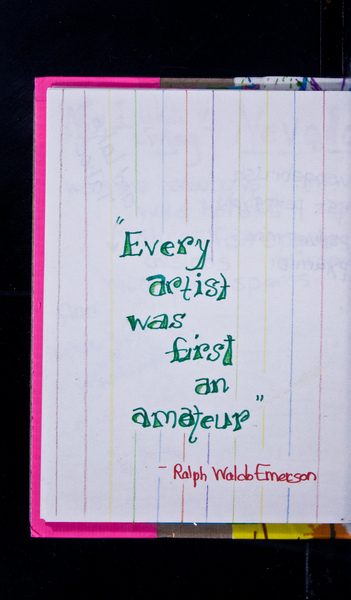 "Every
artist
was
first
an
amateur"
- Ralph Waldo Emerson